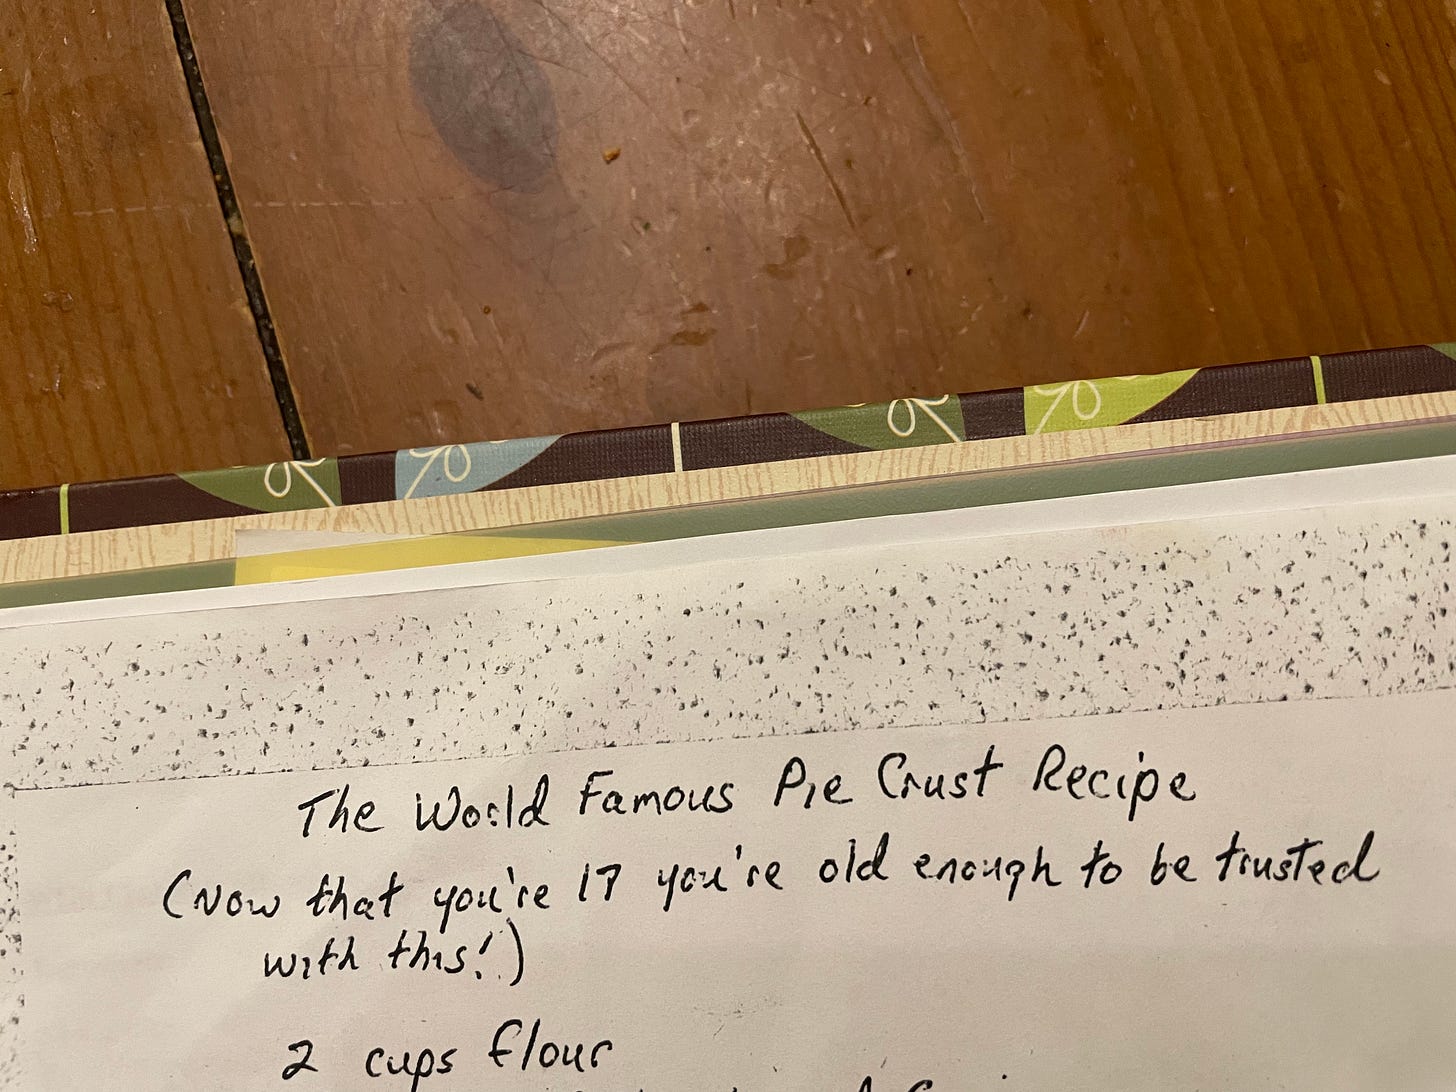 The World Famous Pie Crust Recipe
(Now that you're 17 you're old enough to be trusted
with this!)
2 cups flour